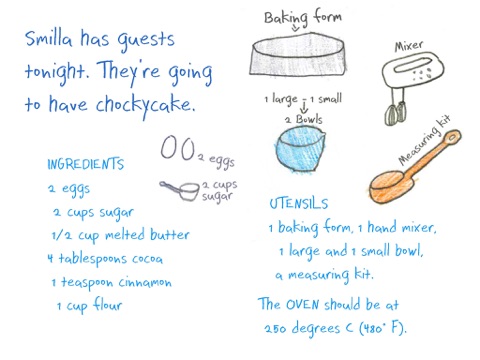 Smilla has guests
tonight. They're going
to have chockycake.
Baking form
Mixer
1 large - 1 small
2 Bowls
Measuring kit
2 eggs
2 cups
sugar
INGREDIENTS
2 eggs
2 cups sugar
1/2 cup melted butter
4 tablespoons cocoa
1 teaspoon cinnamon
1 cup flour
UTENSILS
1 baking form, 1 hand mixer,
1 large and 1 small bowl,
a measuring kit.
The OVEN should be at
250 degrees C (480° F).